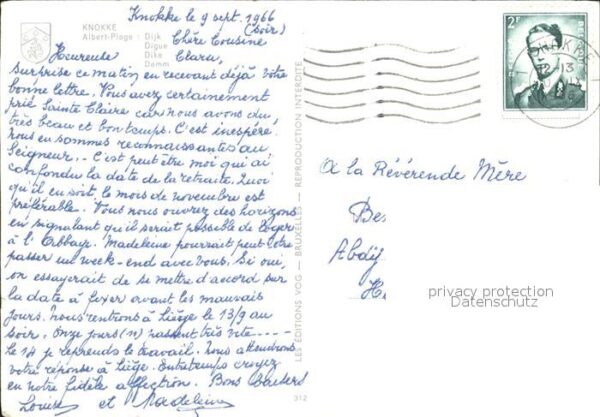 Knokke le 9 sept. 1966
(Soir)
KNOKKE
Albert-Plage : Dijk
Digue
Dike
Damm
Chère Cousine
Clara,
Heureuse
surprise ce matin en recevant déjà votre
bonne lettre. Vous avez certainement
prié Sainte Claire car nous avons du,
très beau et bon temps. C'est inespéré.
Nous en sommes reconnaissantes au
Seigneur. - C'est peut être moi qui ai
confondu la date de la retraite. Quoi
qu'il en soit le mois de novembre est
préférable. Vous nous ouvrez des horizons
en signalant qu'il serait possible de loger
à l'Abbaye. Madeleine pourrait peut être
passer un week-end avec vous. Si oui,
on essayerait de se mettre d'accord sur
la date à fixer avant les mauvais
jours. Nous rentrons à Liège le 13/9 au
soir. Onze jours (n) passent très vite -----
Le 14 je reprends le travail. Nous attendrons
votre réponse à Liège. Entretemps croyez
en notre fidèle affection. Bons baisers
Louise et Madeleine
LES EDITIONS VOG — BRUXELLES — REPRODUCTION INTERDITE
312
2F
KNOKKE
A la Révérende Mère
Be
Abdij
H
privacy protection
Datenschutz